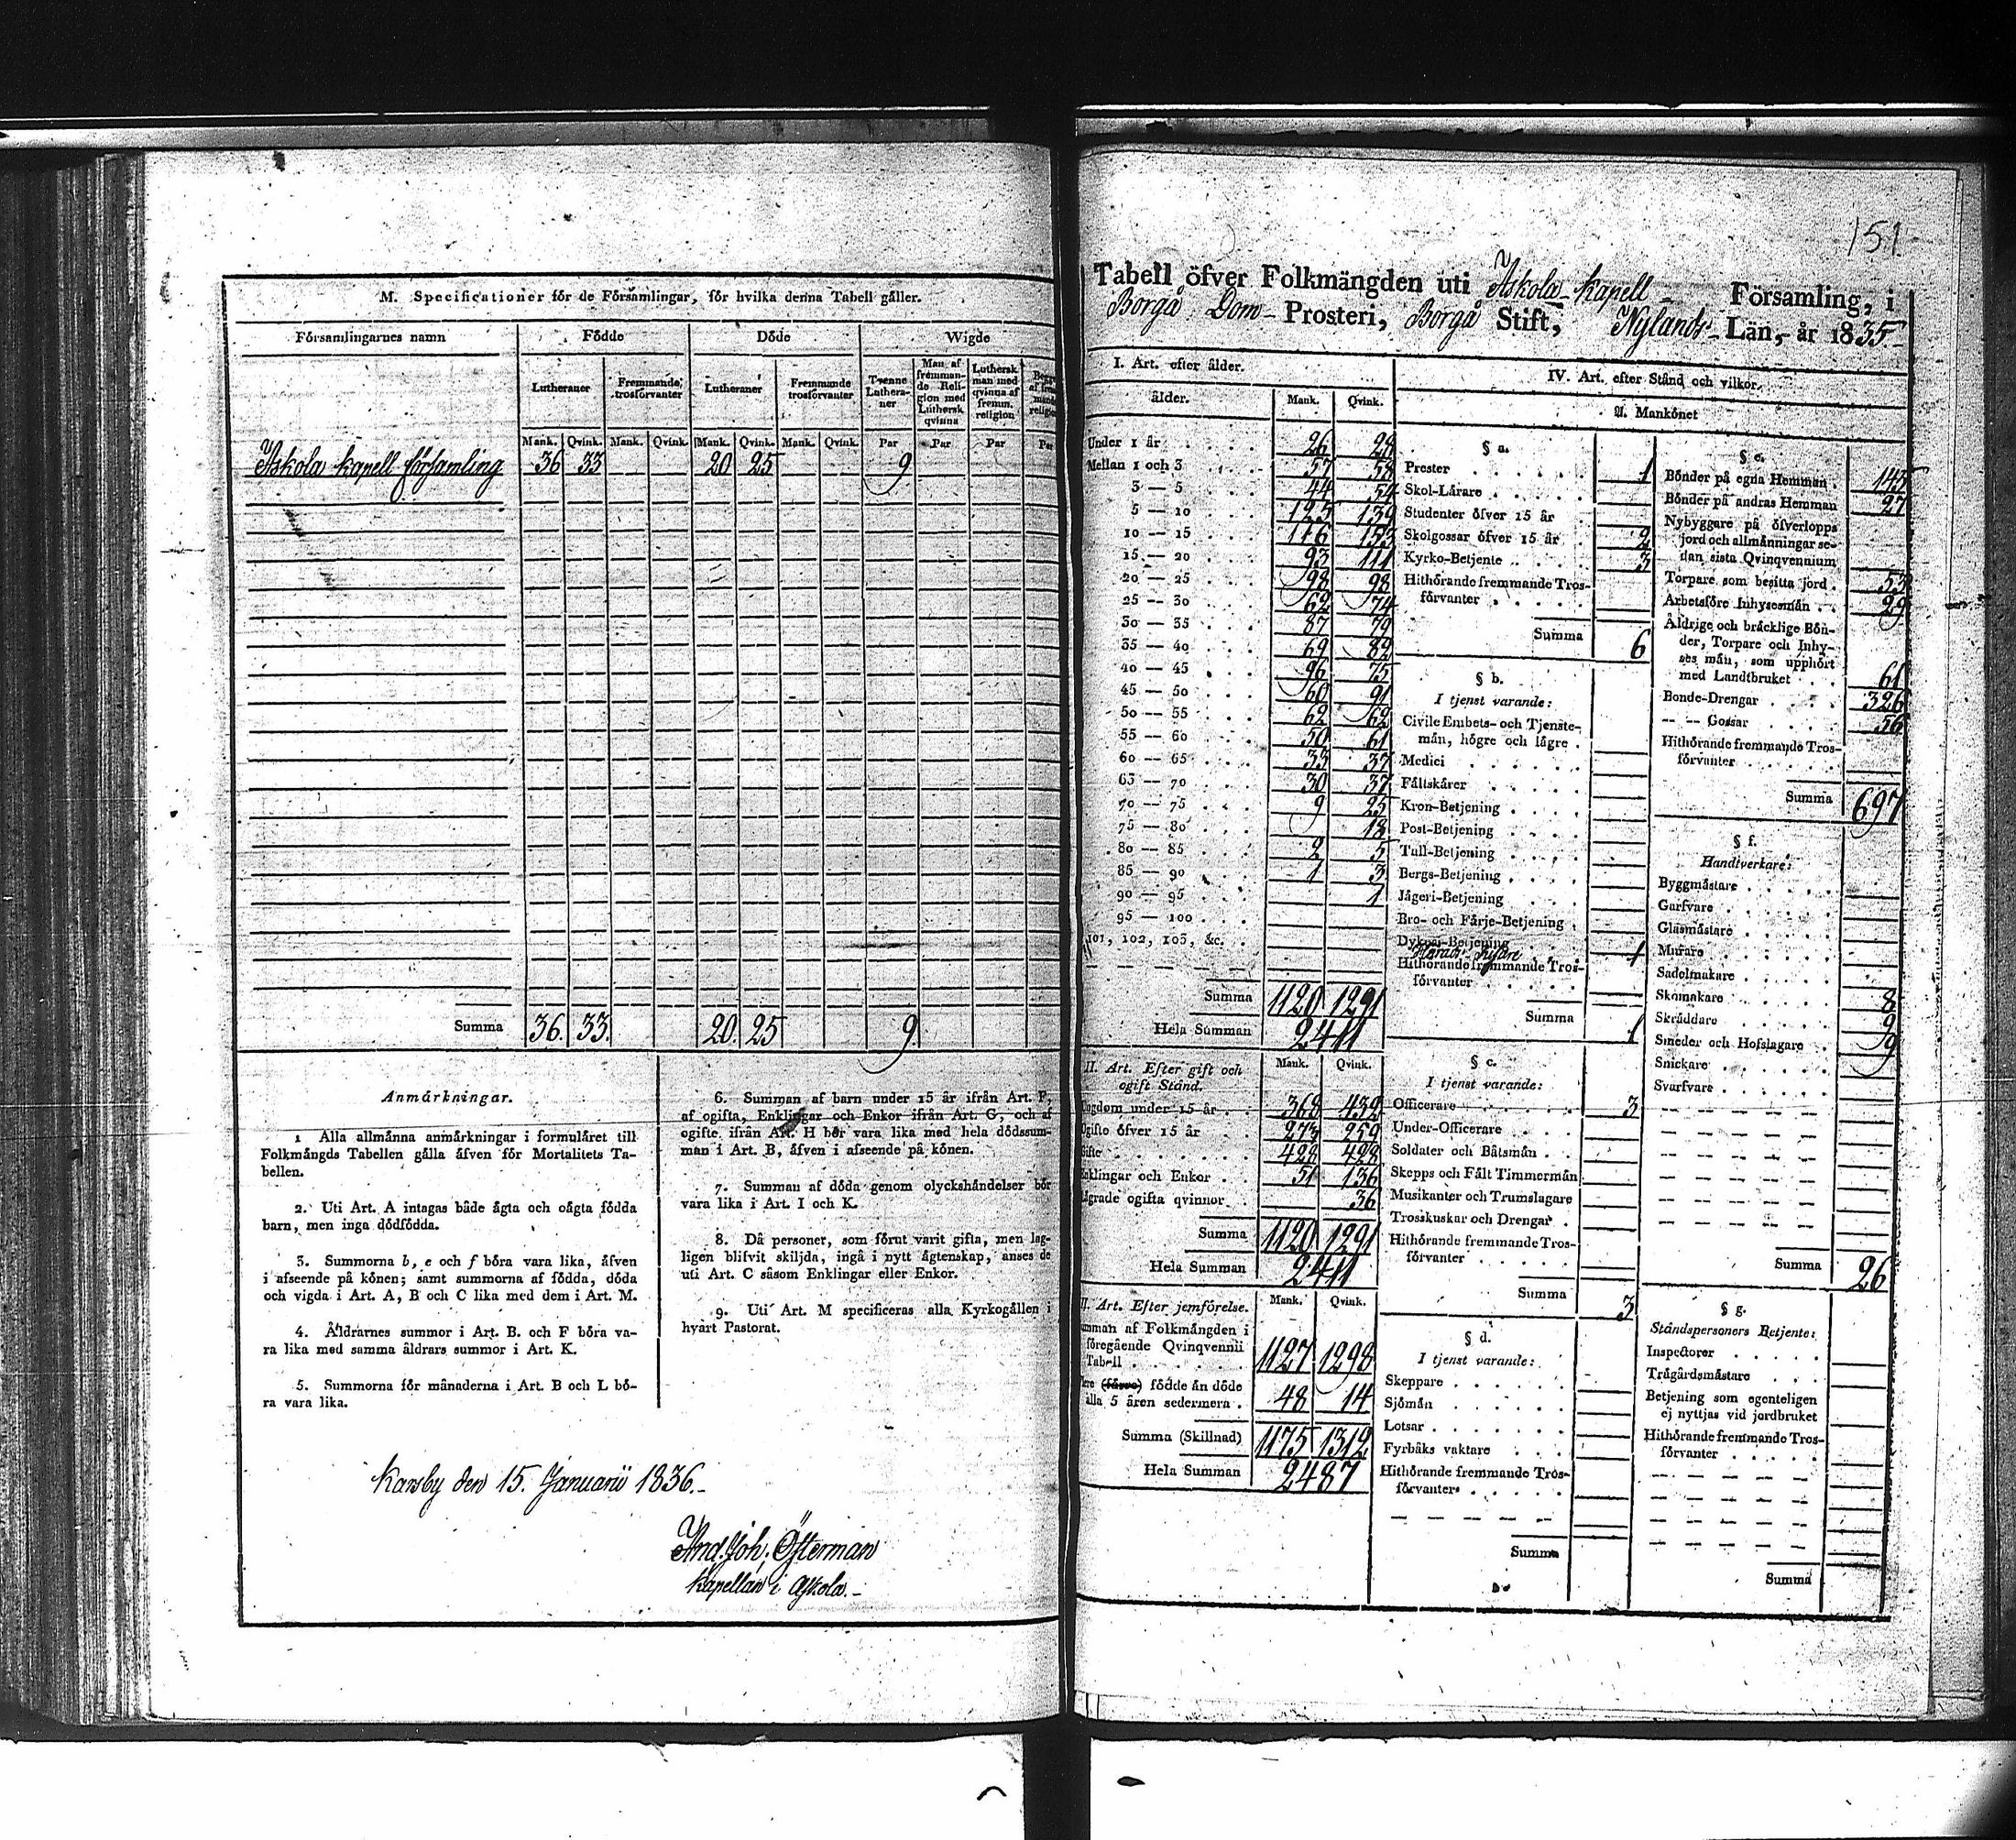 M. Specificationer för de Församlingar, för hvilka denna Tabell gäller.
Församlingarnes namn Födde Döde Wigde
Lutheraner Fremmande trosförvanter Lutheraner Fremmande trosförvanter Tvenne Lutheraner Man af fremmande Religion med Luthersk qvinna Luthersk man med qvinna af fremm. religion
Mank. Qvink. Mank. Qvink. Mank. Qvink. Mank. Qvink. Par Par Par Par
Askola kapell församling 36 33 20 25 9
Summa 36. 33. 20. 25 9
Anmärkningar.
1 Alla allmänna anmärkningar i formuläret till
Folkmängds Tabellen gälla äfven för Mortalitets Ta-
bellen.
2. Uti Art. A intagas både ägta och oägta födda
barn, men inga dödfödda.
3. Summorna b, e och f böra vara lika, äfven
i afseende på könen; samt summorna af födda, döda
och vigda i Art. A, B och C lika med dem i Art. M.
4. Åldrarnes summor i Art. B. och F böra va-
ra lika med samma åldrars summor i Art. K.
5. Summorna för månaderna i Art. B och L bö-
ra vara lika.
6. Summan af barn under 15 år ifrån Art. F,
af ogifta, Enklingar och Enkor ifrån Art. G, och af
ogifte ifrån Art. H bör vara lika med hela dödssum-
man i Art. B, äfven i afseende på könen.
7. Summan af döda genom olyckshändelser bör
vara lika i Art. I och K.
8. Då personer, som förut varit gifta, men lag-
ligen blifvit skiljda, ingå i nytt ägtenskap, anses de
uti Art. C såsom Enklingar eller Enkor.
9. Uti Art. M specificeras alla Kyrkogällen i
hvart Pastorat.
Karsby den 15. Januarii 1836.-
And. Joh. Österman
Kapellan i Askola.-
151
Tabell öfver Folkmängden uti Askola kapell - Församling, i
Borgå Dom- Prosteri, Borgå Stift, Nylands- Län, år 1835-
I. Art. efter ålder.
ålder. Mank. Qvink.
Under 1 år 26 28
Mellan 1 och 3 57 58
3 — 5 44 54
5 — 10 125 139
10 — 15 116 153
15 — 20 93 111
20 — 25 98 98
25 — 30 62 74
30 — 35 87 79
35 — 40 69 82
40 — 45 96 75
45 — 50 60 91
50 — 55 62 62
55 — 60 50 61
60 — 65 33 37
65 — 70 30 37
70 — 75 9 25
75 — 80 18
80 — 85 2 5
85 — 90 1 3
90 — 95 1
95 — 100
101, 102, 103, &c.
Summa 1120 1291
Hela Summan 2411
II. Art. Efter gift och Mank. Qvink.
ogift Stånd.
under 15 år 368 432
öfver 15 år 273 259
428 428
och Enkor 51 136
ogifta qvinnor 36
Summa 1120 1291
Hela Summan 2411
Art. Efter jemförelse. Mank. Qvink.
af Folkmängden i
föregående Qvinqvennii
Tabell 1127 1298
(färre) födde än döde
alla 5 åren sedermera 48 14
Summa (Skillnad) 1175 1312
Hela Summan 2487
IV. Art. efter Stånd och vilkor.
A. Mankönet
§ a.
Prester 1
Skol-Lärare
Studenter öfver 15 år
Skolgossar öfver 15 år 2
Kyrko-Betjente 3
Hithörande fremmande Tros-
förvanter
Summa 6
§ b.
I tjenst varande:
Civile Embets- och Tjenste-
män, högre och lägre
Medici
Fältskärer
Kron-Betjening
Post-Betjening
Tull-Betjening
Bergs-Betjening
Jägeri-Betjening
Bro- och Färje-Betjening
Hithörande fremmande Tros- 1
förvanter
Summa 1
§ c.
I tjenst varande:
Officerare 3
Under-Officerare
Soldater och Båtsmän
Skepps och Fält Timmermän
Musikanter och Trumslagare
Trosskuskar och Drengar
Hithörande fremmande Tros-
förvanter
Summa 3
§ d.
I tjenst varande:
Skeppare
Sjömän
Lotsar
Fyrbåks vaktare
Hithörande fremmande Tros-
förvanter
Summa
§ e.
Bönder på egna Hemman 145
Bönder på andras Hemman 27
Nybyggare på öfverlopps
jord och allmänningar se-
dan sista Qvinqvennium
Torpare som besitta jord 53
Arbetsföre Inhysesmän 29
Åldrige och bräcklige Bön-
der, Torpare och Inhy-
ses män, som upphört
med Landtbruket 61
Bonde-Drengar 326
— — Gossar 56
Hithörande fremmande Tros-
förvanter
Summa 697
§ f.
Handtverkare:
Byggmästare
Garfvare
Glasmästare
Murare
Sadelmakare
Skomakare 8
Skräddare 9
Smeder och Hofslagare 9
Snickare
Svarfvare
Summa 26
§ g.
Ståndspersoners Betjente:
Inspector
Trägårdsmästare
Betjening som egenteligen
ej nyttjas vid jordbruket
Hithörande fremmande Tros-
förvanter
Summa